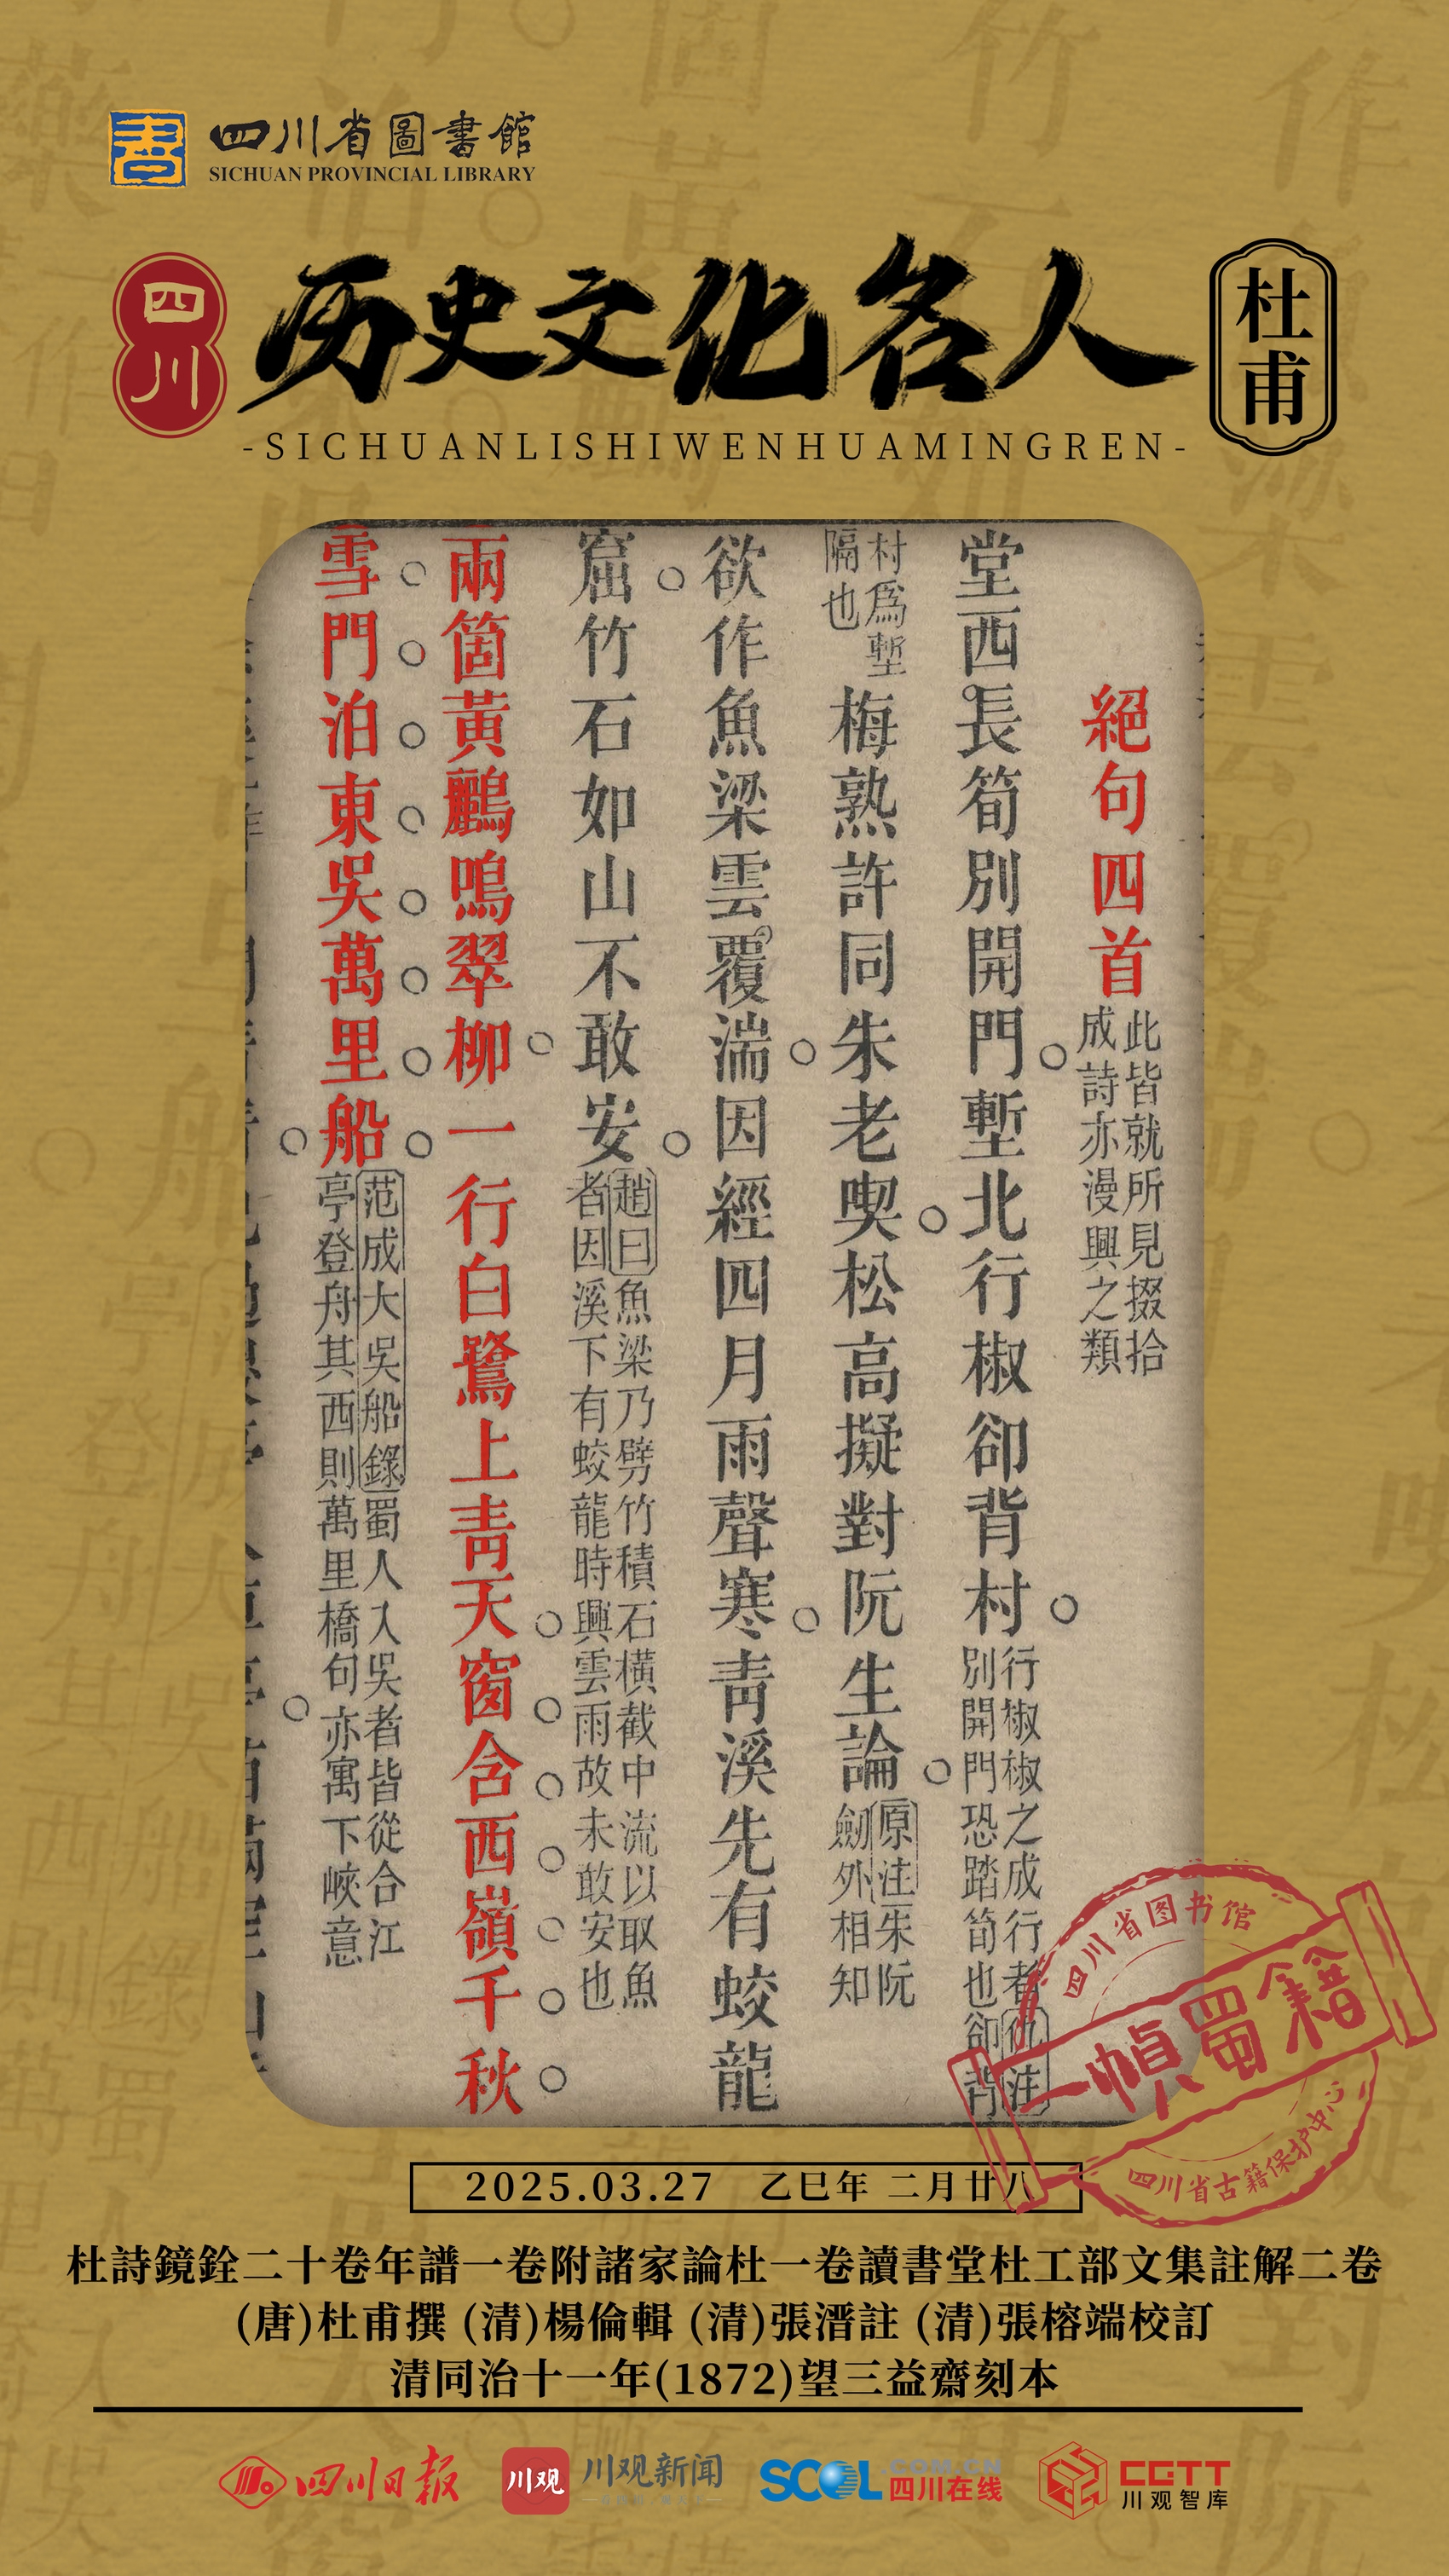 書
四川省圖書館
SICHUAN PROVINCIAL LIBRARY
四川
历史文化名人
杜甫
-SICHUANLISHIWENHUAMINGREN-
絕句四首
此皆就所見掇拾
成詩亦漫興之類
堂西長筍別開門塹北行椒卻背村
行椒椒之成行者仇注
別開門恐踏筍也卻背
村爲塹
隔也
梅熟許同朱老喫松高擬對阮生論
原注朱阮
劒外相知
欲作魚梁雲覆湍因經四月雨聲寒靑溪先有蛟龍
窟竹石如山不敢安
趙曰魚梁乃劈竹積石橫截中流以取魚
者因溪下有蛟龍時興雲雨故未敢安也
兩箇黃鸝鳴翠柳一行白鷺上靑天窗含西嶺千秋
雪門泊東吳萬里船
范成大吳船錄蜀人入吳者皆從合江
亭登舟其西則萬里橋句亦寓下峽意
四川省图书馆
一幀蜀籍
四川省古籍保护中心
2025.03.27 乙巳年 二月廿八
杜詩鏡銓二十卷年譜一卷附諸家論杜一卷讀書堂杜工部文集註解二卷
(唐)杜甫撰 (清)楊倫輯 (清)張溍註 (清)張榕端校訂
清同治十一年(1872)望三益齋刻本
四川日报
川观
川观新闻
SCOL.COM.CN
四川在线
CGTT
川观智库